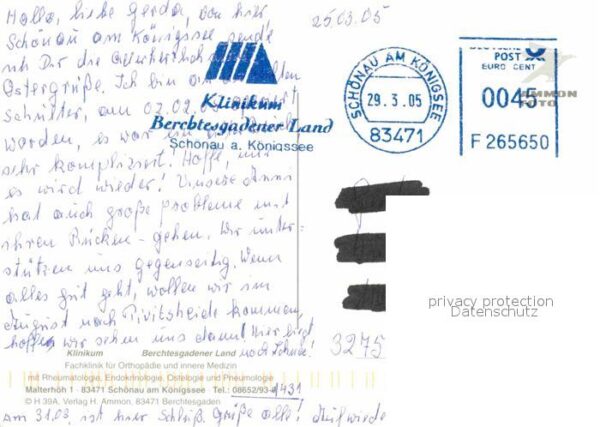 Hallo, liebe Gerda, von hier,
Schönau am Königssee sende
ich Dir die allerherzlichsten
Ostergrüße. Ich bin an der
Schulter, am 02.02.
worden, es war
sehr kompliziert! Hoffe,
es wird wieder! Unsere Anni
hat auch große Probleme mit
ihren Rücken - gehen. Wir unter-
stützen uns gegenseitig. Wenn
alles gut geht, wollen wir im
August nach Pivitsheide kommen,
hoffe, wir sehen uns dann! Hier liegt
noch Schnee!
Am 31.03. ist hier Schluß. Grüße alle!
25.03.05
Klinikum
Berchtesgadener Land
Schönau a. Königssee
SCHÖNAU AM KÖNIGSSEE
29.3.05
83471
POST
EURO CENT
0045
F 265650
AMMON
FOTO
privacy protection
Datenschutz
3275
Klinikum Berchtesgadener Land
Fachklinik für Orthopädie und innere Medizin
mit Rheumatologie, Endokrinologie, Osteologie und Pneumologie
Malterhöh 1 · 83471 Schönau am Königssee · Tel.: 08652/93-
1431
© H 39A, Verlag H. Ammon, 83471 Berchtesgaden